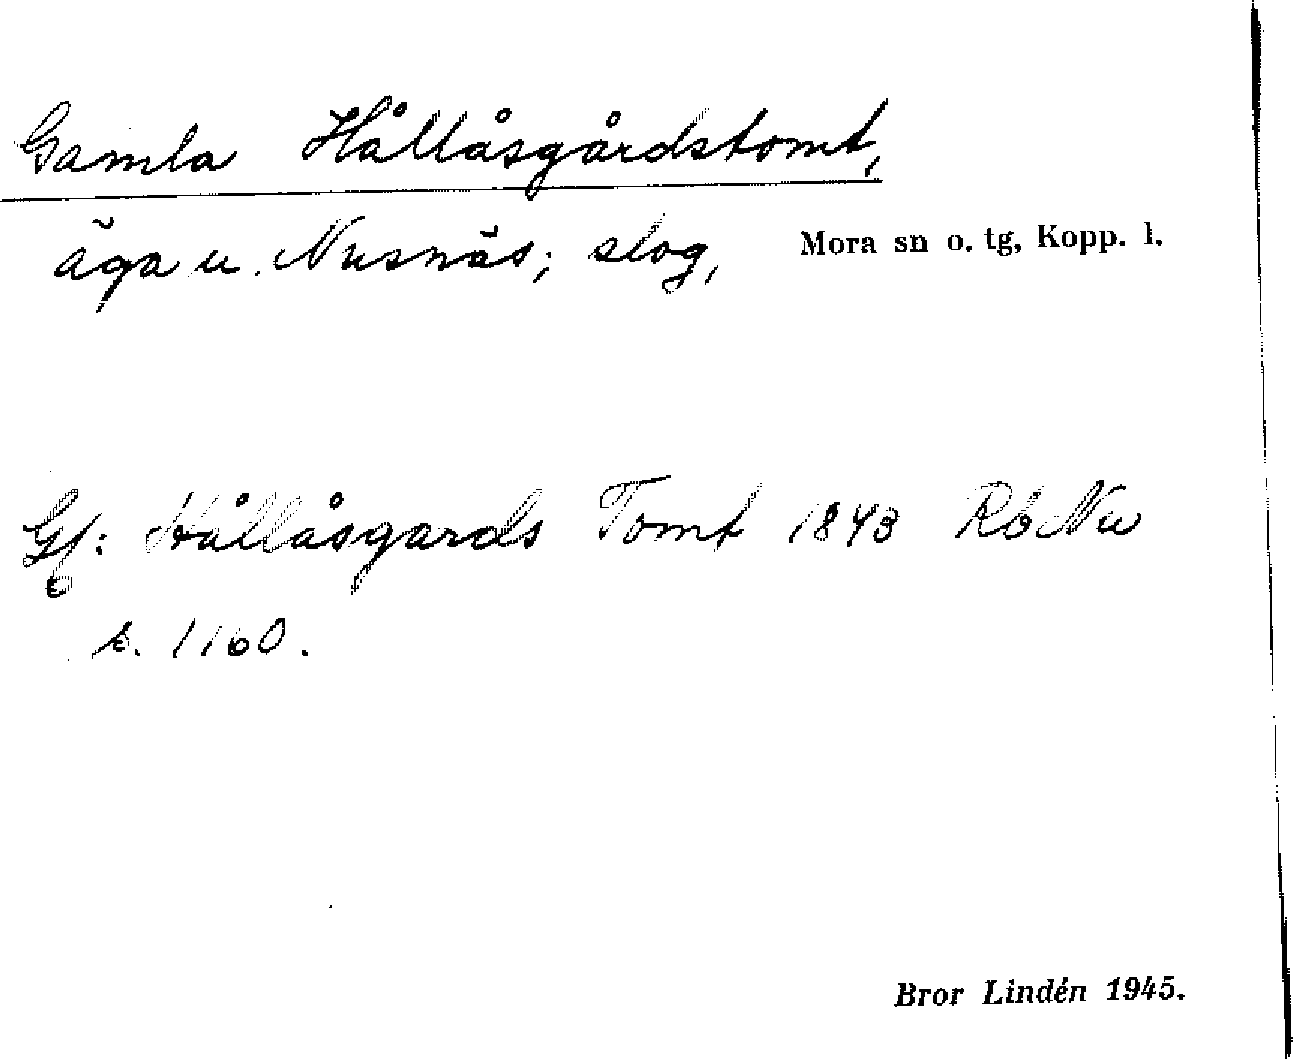 Gamla Hållåsgårdstomt,
äga u. Nusnäs; slog, Mora sn o. tg, Kopp. l.
Gf: Hållåsgards Tomt 1843 RbNu
s. 1160.
Bror Lindén 1945.